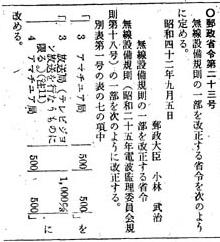 ◎郵政省令第二十三号
無線設備規則の一部を改正する省令を次のよう
に定める。
昭和四十二年九月五日
郵政大臣 小林 武治
無線設備規則の一部を改正する省令
無線設備規則(昭和二十五年電波監理委員会規
則第十八号)の一部を次のように改正する。
別表第一号の表の七の項中
「3 アマチュア局 500」を
「3 放送局(テレビジョ
ン放送を行なうものに
限る。) 1,000
4 アマチュア局 500」に
改める。